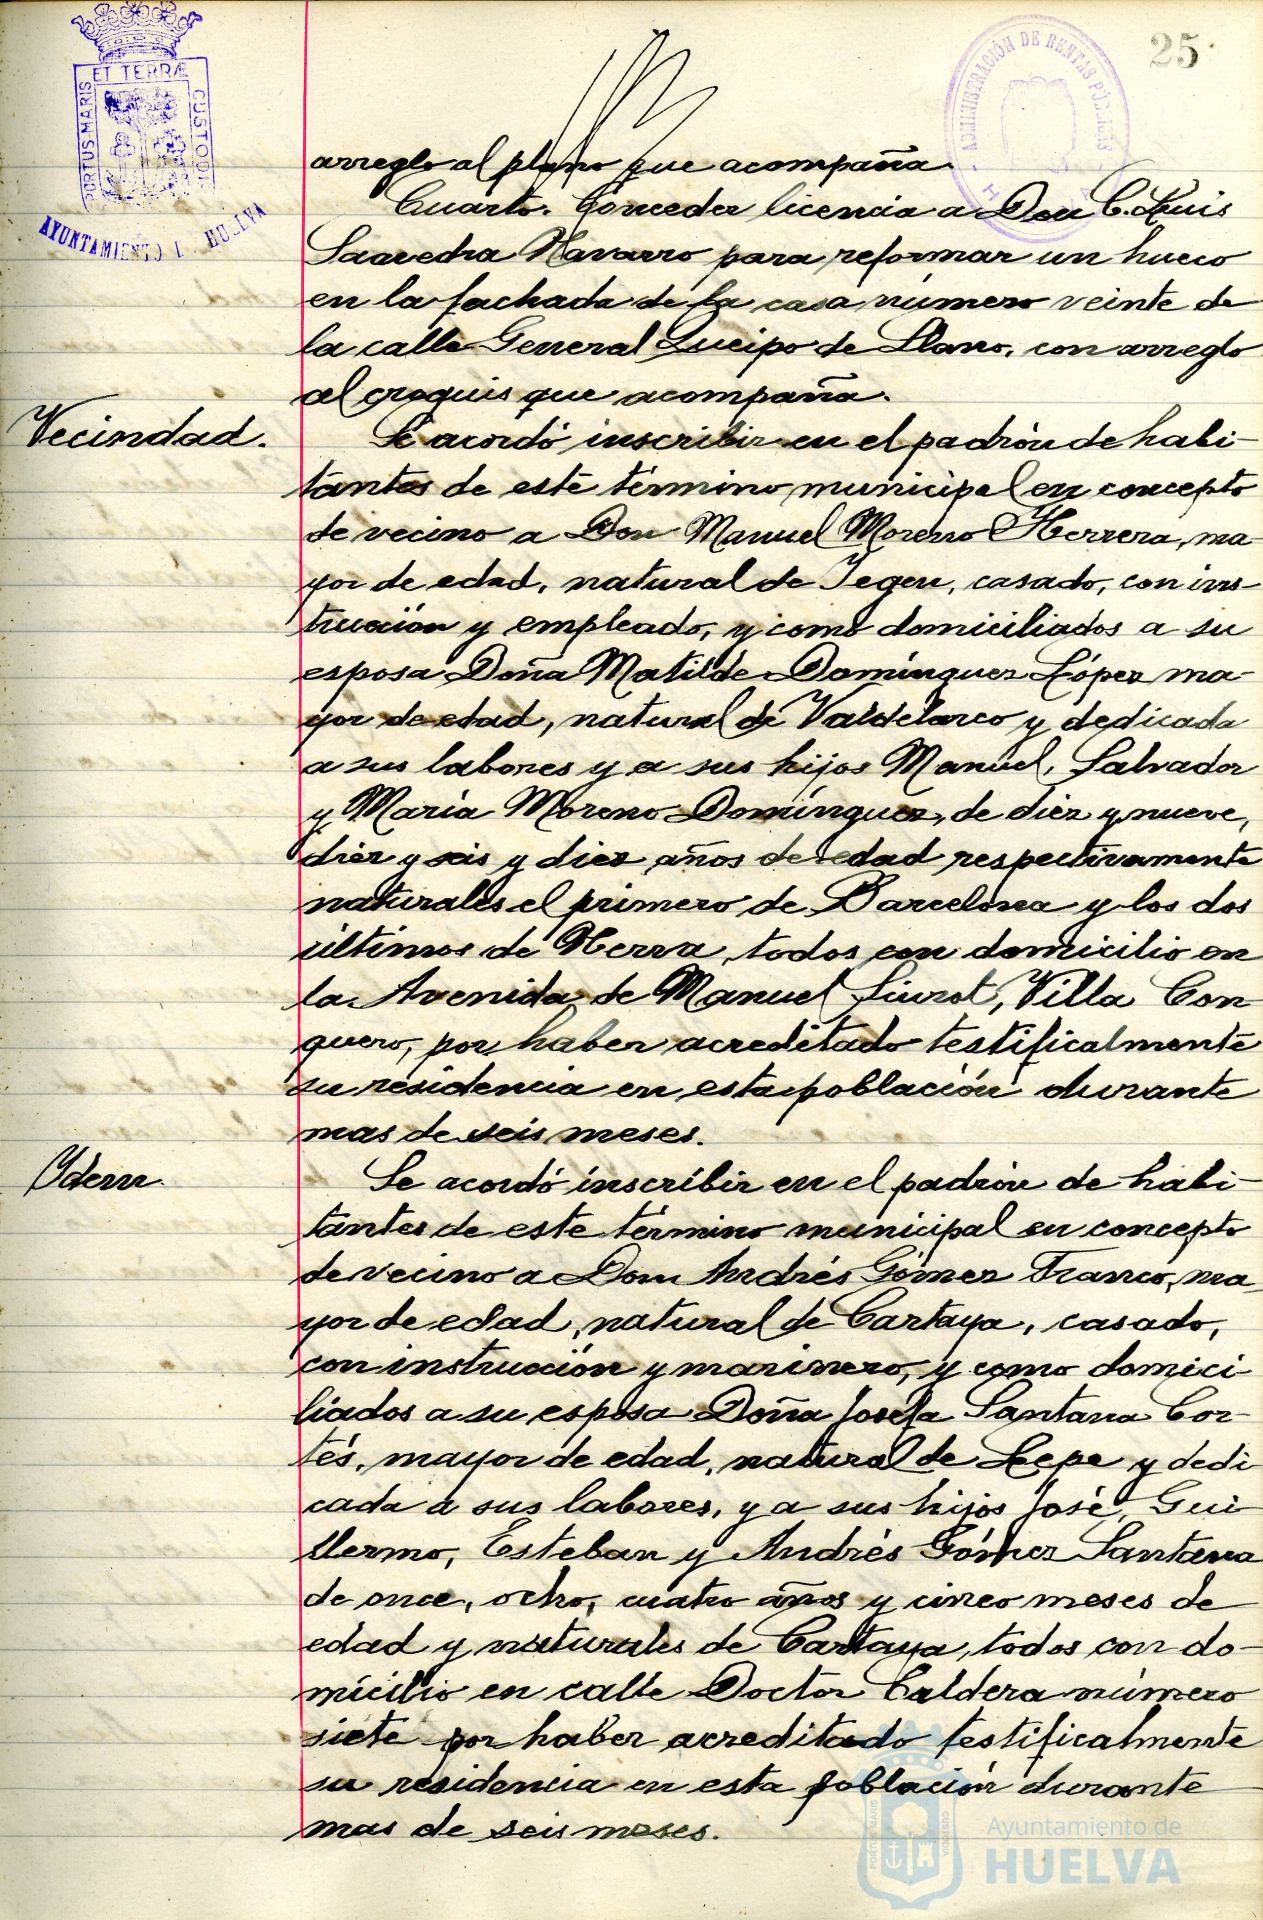 25
ET TERRÆ
PORTUS MARIS
CUSTODIA
AYUNTAMIENTO D HUELVA
ADMINISTRACIÓN DE RENTAS PÚBLICAS
arreglo al plano que acompaña.
Cuarto. Conceder licencia a Don C. Luis
Saavedra Navarro para reformar un hueco
en la fachada de la casa número veinte de
la calle General Queipo de Llano, con arreglo
al croquis que acompaña.
Vecindad.
Se acordó inscribir en el padrón de habi-
tantes de este término municipal en concepto
de vecino a Don Manuel Moreno Herrera, ma-
yor de edad, natural de Jegen, casado, con ins-
trucción y empleado, y como domiciliados a su
esposa Doña Matilde Domínguez López ma-
yor de edad, natural de Valdelarco y dedicada
a sus labores y a sus hijos Manuel, Salvador
y María Moreno Domínguez, de diez y nueve,
diez y seis y diez años de edad respectivamente
naturales el primero de Barcelona y los dos
últimos de Nerva, todos con domicilio en
la Avenida de Manuel Siurot, Villa Con
quero, por haber acreditado testificalmente
su residencia en esta población durante
mas de seis meses.
Ydem.
Se acordó inscribir en el padrón de habi-
tantes de este término municipal en concepto
de vecino a Don Andrés Gómez Franco, ma-
yor de edad, natural de Cartaya, casado,
con instrucción y marinero, y como domici
liados a su esposa Doña Josefa Santana Cor-
tés, mayor de edad, natural de Lepe y dedi
cada a sus labores, y a sus hijos José, Gui
llermo, Esteban y Andrés Gómez Santana
de once, ocho, cuatro años y cinco meses de
edad y naturales de Cartaya, todos con do-
micilio en calle Doctor Caldera número
siete por haber acreditado testificalmente
su residencia en esta población durante
mas de seis meses.
Ayuntamiento de
HUELVA